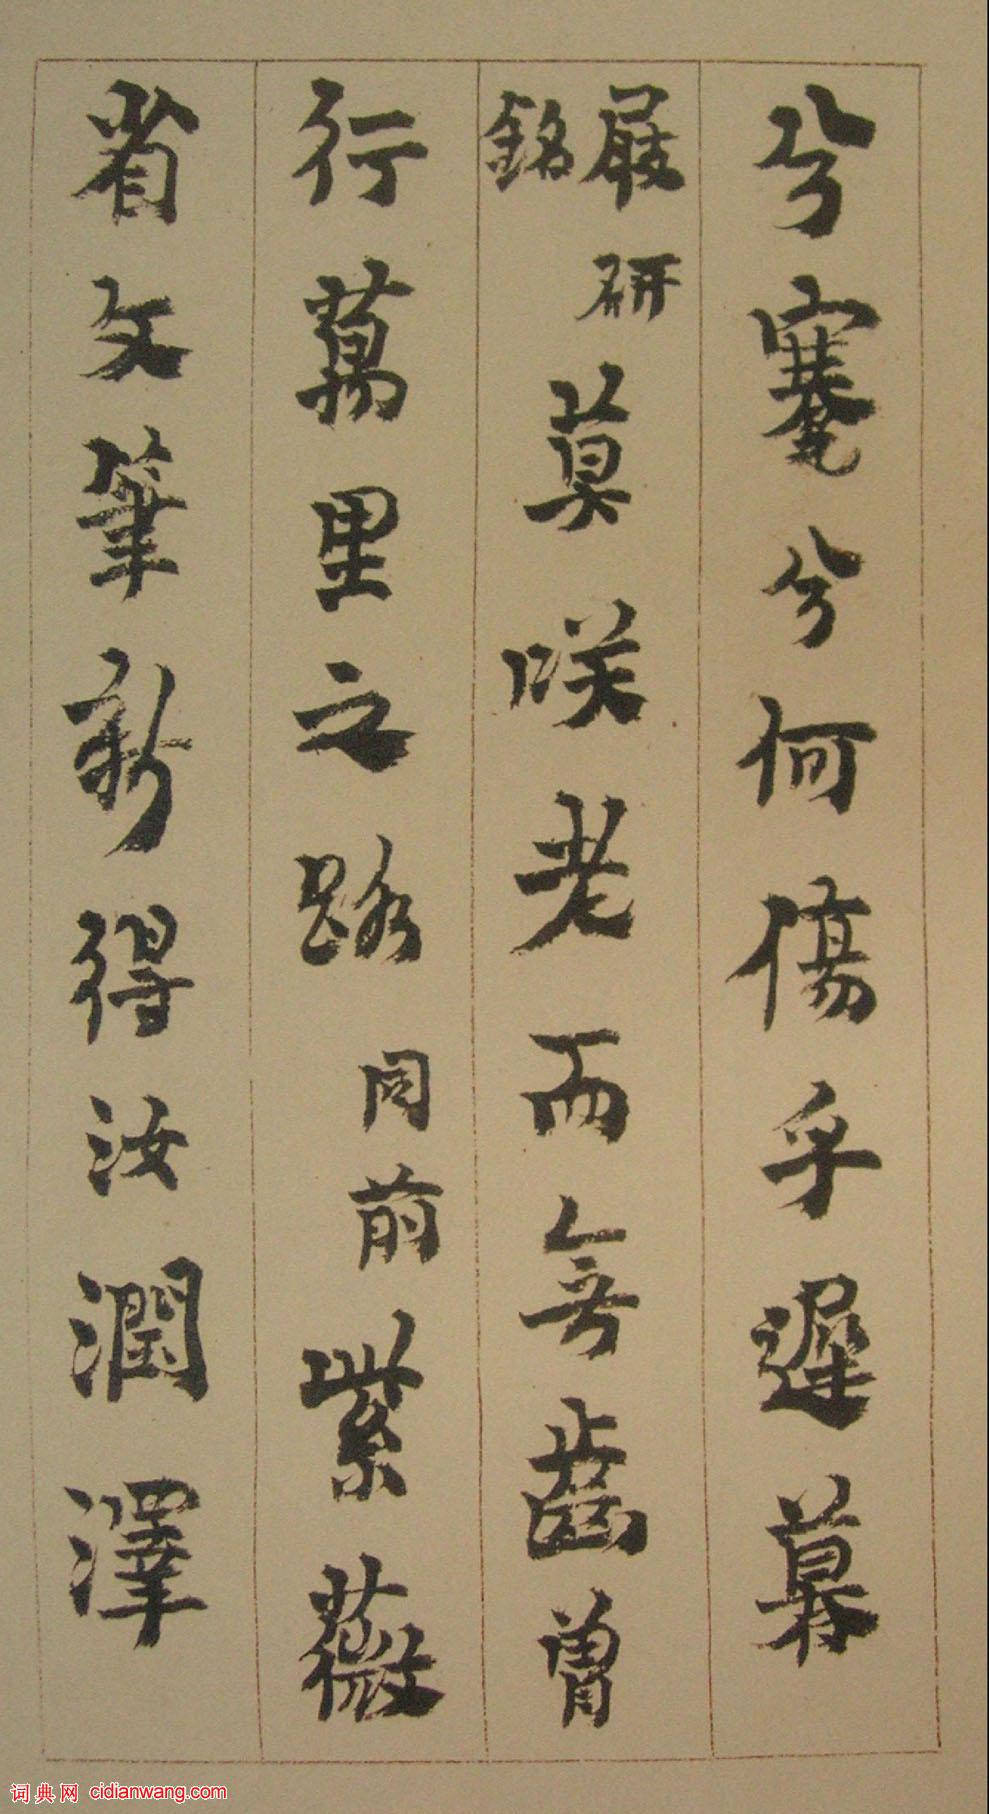 兮蹇兮何傷乎遲暮
屐研銘莫咲老而無齒曾
行萬里之路同前紫薇
省文筆新得汝潤澤
词典网 cidianwang.com